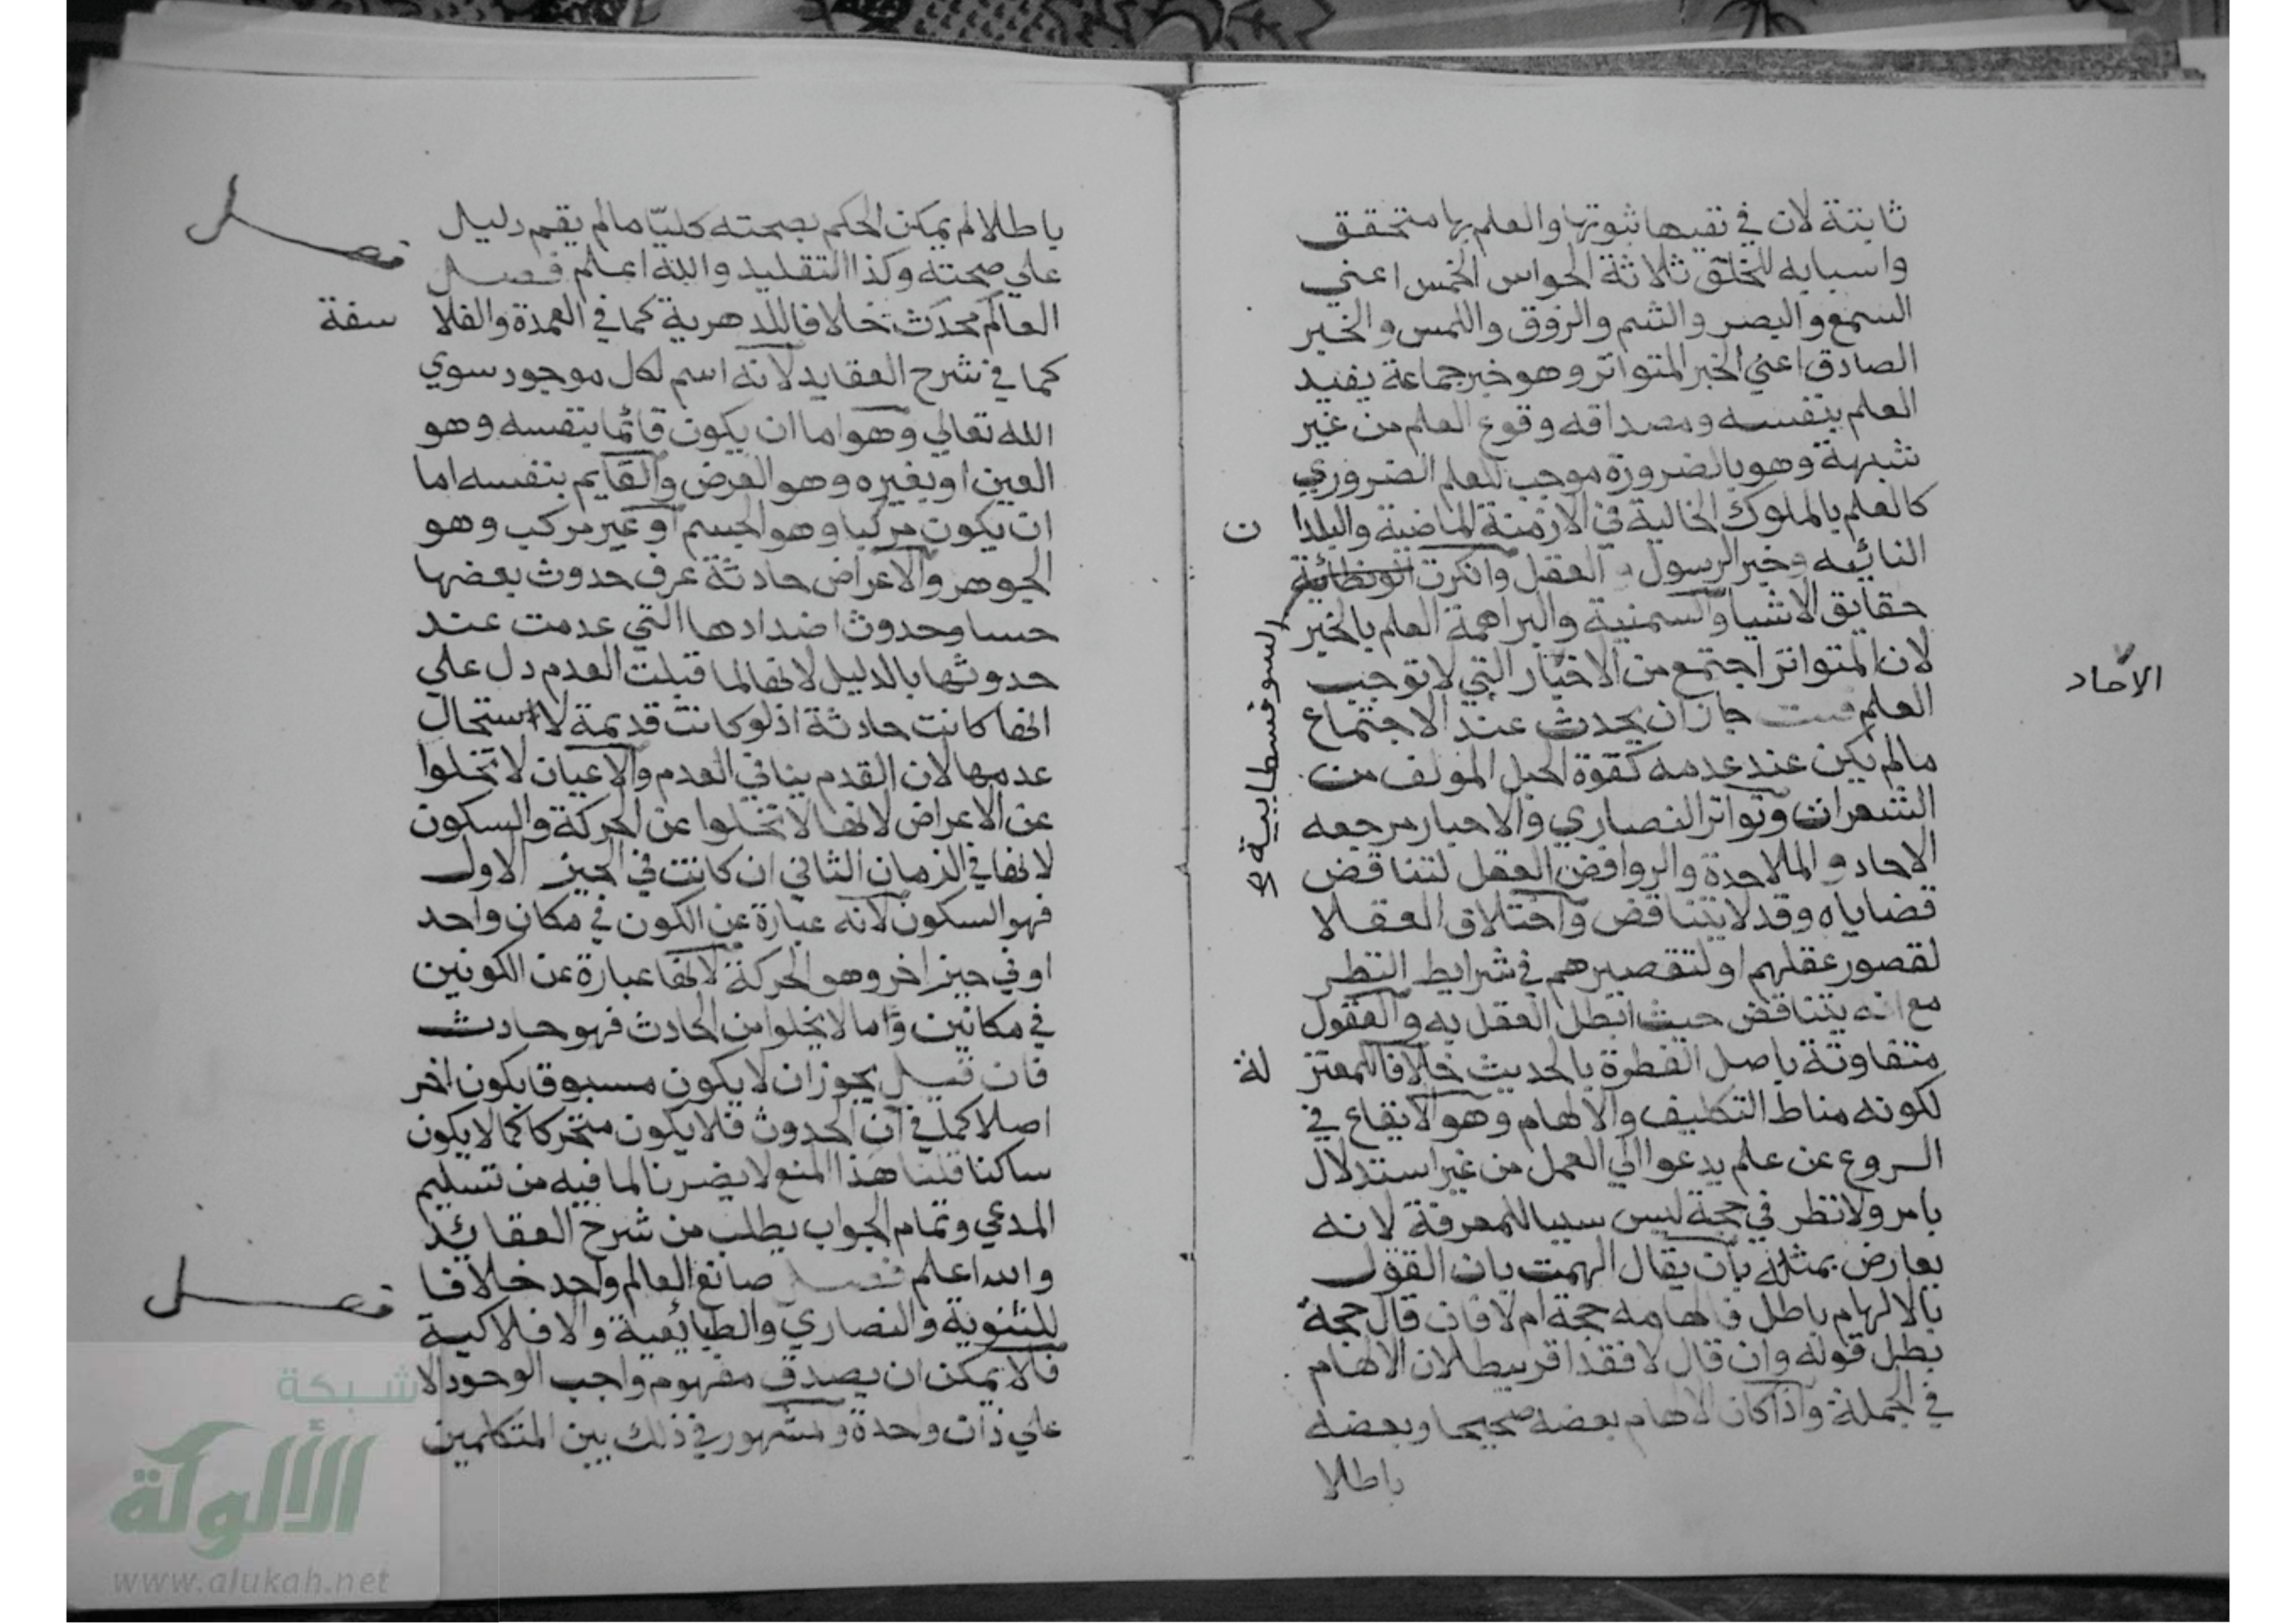 ثابتة لان في نفيها ثبوتها والعلم بها متحقق
واسبابه للخلق ثلاثة الحواس الخمس اعني
السمع والبصر والشم والزوق واللمس والخبر
الصادق اعني الخبر المتواتر وهو خبر جماعة يفيد
العلم بنفسه ومصداقه وقوع العلم من غير
شبهة وهو بالضرورة موجب للعلم الضروري
كالعلم بالملوك الخالية في الازمنة الماضية والبلدا ن
النائيه وخبر الرسول و العقل وانكرت
السوفسطابية
حقايق الاشيا والسمنية والبراهمة العلم بالخبر
لان المتواتر اجتمع من الاخبار التي لا توجب
الاحاد
العلم جاز ان يحدث عند الاجتماع
مالم يكن عند عدمه كقوة الحبل المولف من
الشعرات وتواتر النصاري والاحبار مرجعه
الاحاد والملاحدة والروافض العقل لتناقض
قضاياه وقد لا يتناقض واختلاف العقلا
لقصور عقلهم او لتقصيرهم في شرايط النظر
مع انه يتناقض حيث ابطل العقل به والعقول
متفاوتة باصل الفطرة بالحديث خلافا للمعتز لة
لكونه مناط التكليف والالهام وهو الايقاع في
الروع عن علم يدعوا الي العمل من غير استدلال
بامر ولا نظر في حجة ليس سببا للمعرفة لانه
يعارض بمثله بان يقال الهمت بان القول
بالالهام باطل فالهامه حجة ام لا فان قال حجة
بطل قوله وان قال لا فقد اقر ببطلان الالهام
في الجملة واذا كان الالهام بعضه صحيحا وبعضه
باطلا
باطلا لم يمكن الحكم بصحته كليا مالم يقم دليل
علي صحته وكذا التقليد والله اعلم فصل
فصل
العالم محدث خلافا للدهرية كما في العمدة والفلا سفة
كما في شرح العقايد لانه اسم لكل موجود سوي
الله تعالي وهو اما ان يكون قائما بنفسه وهو
العين او بغيره وهو العرض والقايم بنفسه اما
ان يكون مركبا وهو الجسم او غير مركب وهو
الجوهر والاعراض حادثة عرف حدوث بعضها
حسا وحدوث اضدادها التي عدمت عند
حدوثها بالدليل لانها لما قبلت العدم دل علي
انها كانت حادثة اذ لو كانت قديمة لاستحال
عدمها لان القدم ينافي العدم والاعيان لا تخلوا
عن الاعراض لانها لا تخلوا عن الحركة والسكون
لانها في الزمان الثاني ان كانت في الحيز الاول
فهو السكون لانه عبارة عن الكون في مكان واحد
او في حيز اخر وهو الحركة لانها عبارة عن الكونين
في مكانين وما لا يخلوا من الحادث فهو حادث
فان قيل يجوز ان لا يكون مسبوقا بكون اخر
اصلا كما في آن الحدوث فلا يكون متحركا كما لا يكون
ساكنا قلنا هذا المنع لا يضرنا لما فيه من تسليم
المدعي وتمام الجواب يطلب من شرح العقائد
والله اعلم فصل صانع العالم واحد خلافا
فصل
للثنوية والنصاري والطبائعية والافلاكية
فلا يمكن ان يصدق مفهوم واجب الوجود الا
علي ذات واحدة والمشهور في ذلك بين المتكلمين
شبكة
الألوكة
www.alukah.net